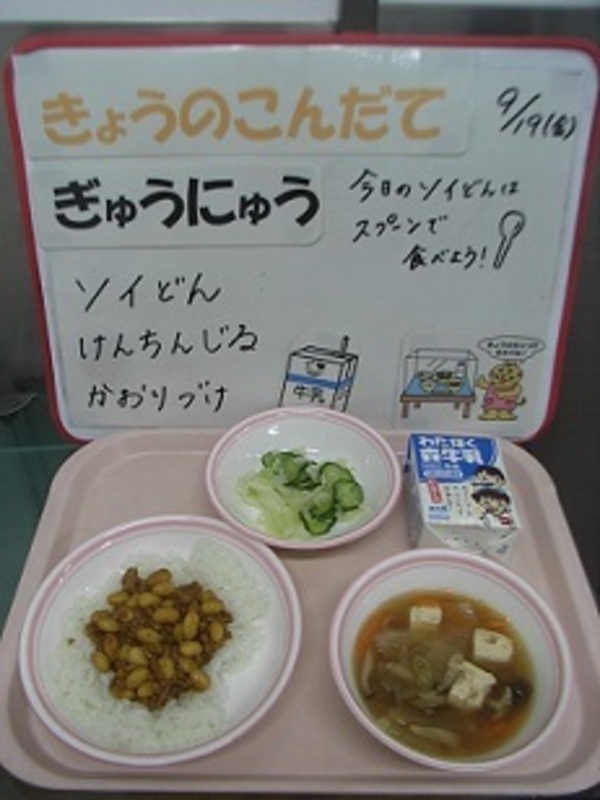 きょうのこんだて
9/19(金)
ぎゅうにゅう
今日のソイどんは
スプーンで
食べよう!
ソイどん
けんちんじる
かおりづけ
牛乳
森牛乳